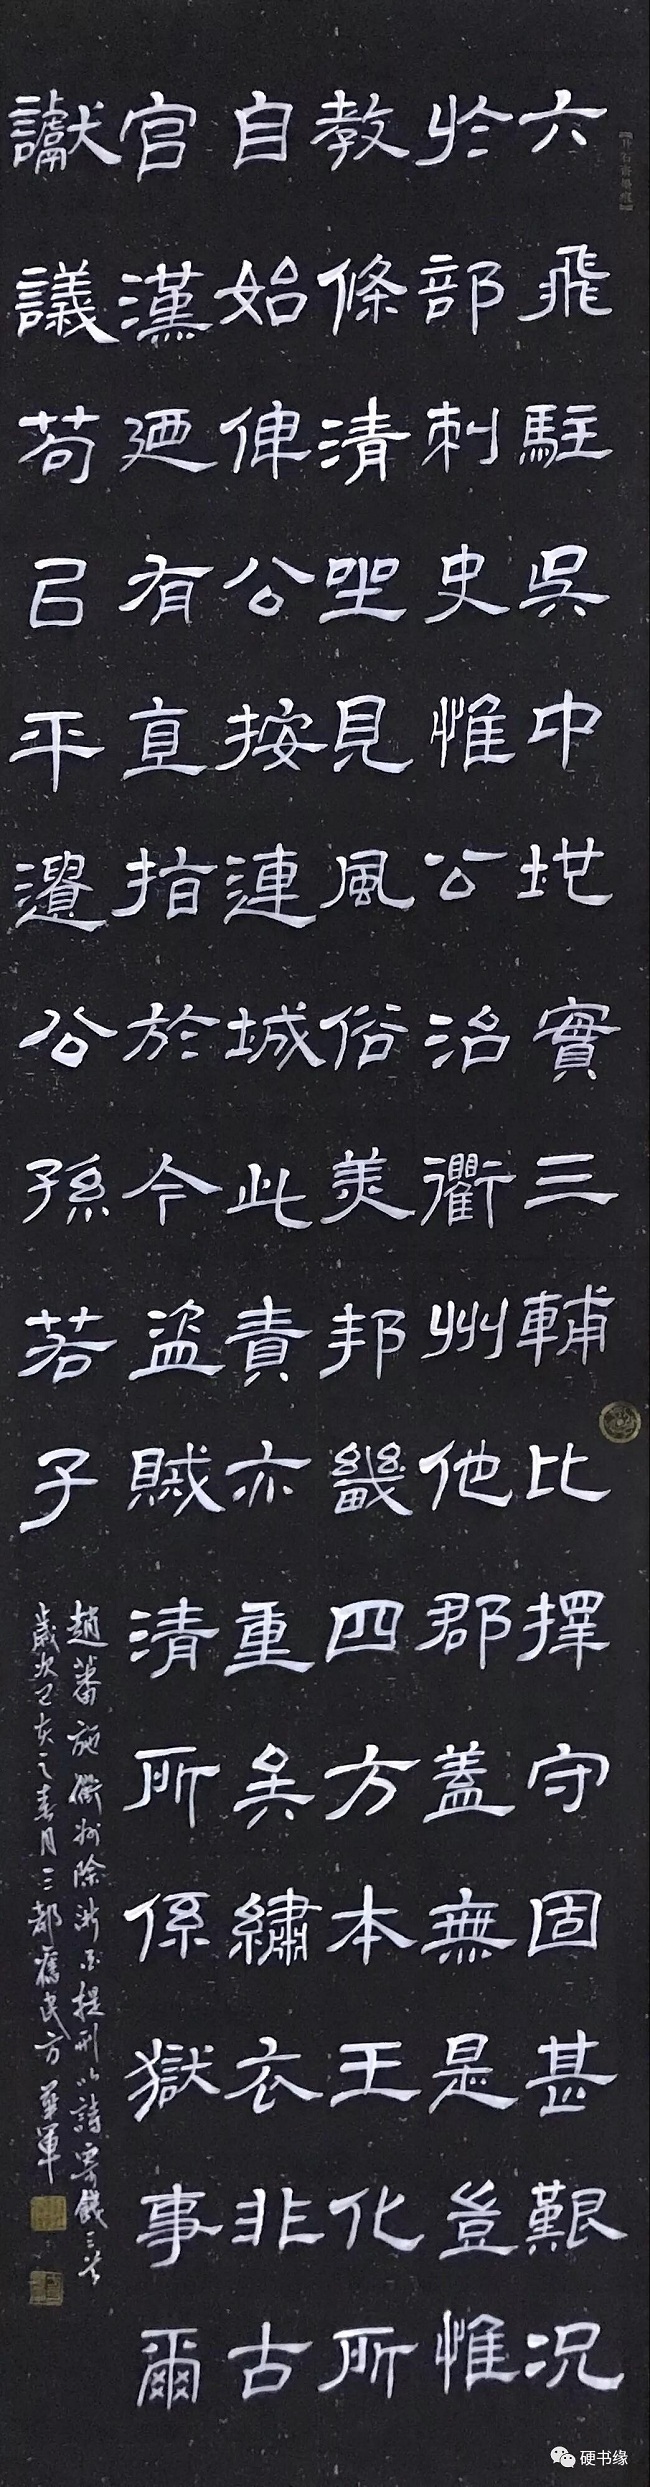 六飛駐吳中地實三輔比擇守固甚艱况
於部刺史惟公治衢州他郡蓋無是豈惟
教條清坐見風俗美邦畿四方本王化所
自始伸公按連城此責亦重矣繡衣非古
官漢廼有直指於今盜賊清所係獄事爾
讞議苟已平還公孫若子
趙蕃施衢州除浙西提刑以詩寄餞三首
歲次己亥之春月三都舊民方華軍
硬书缘